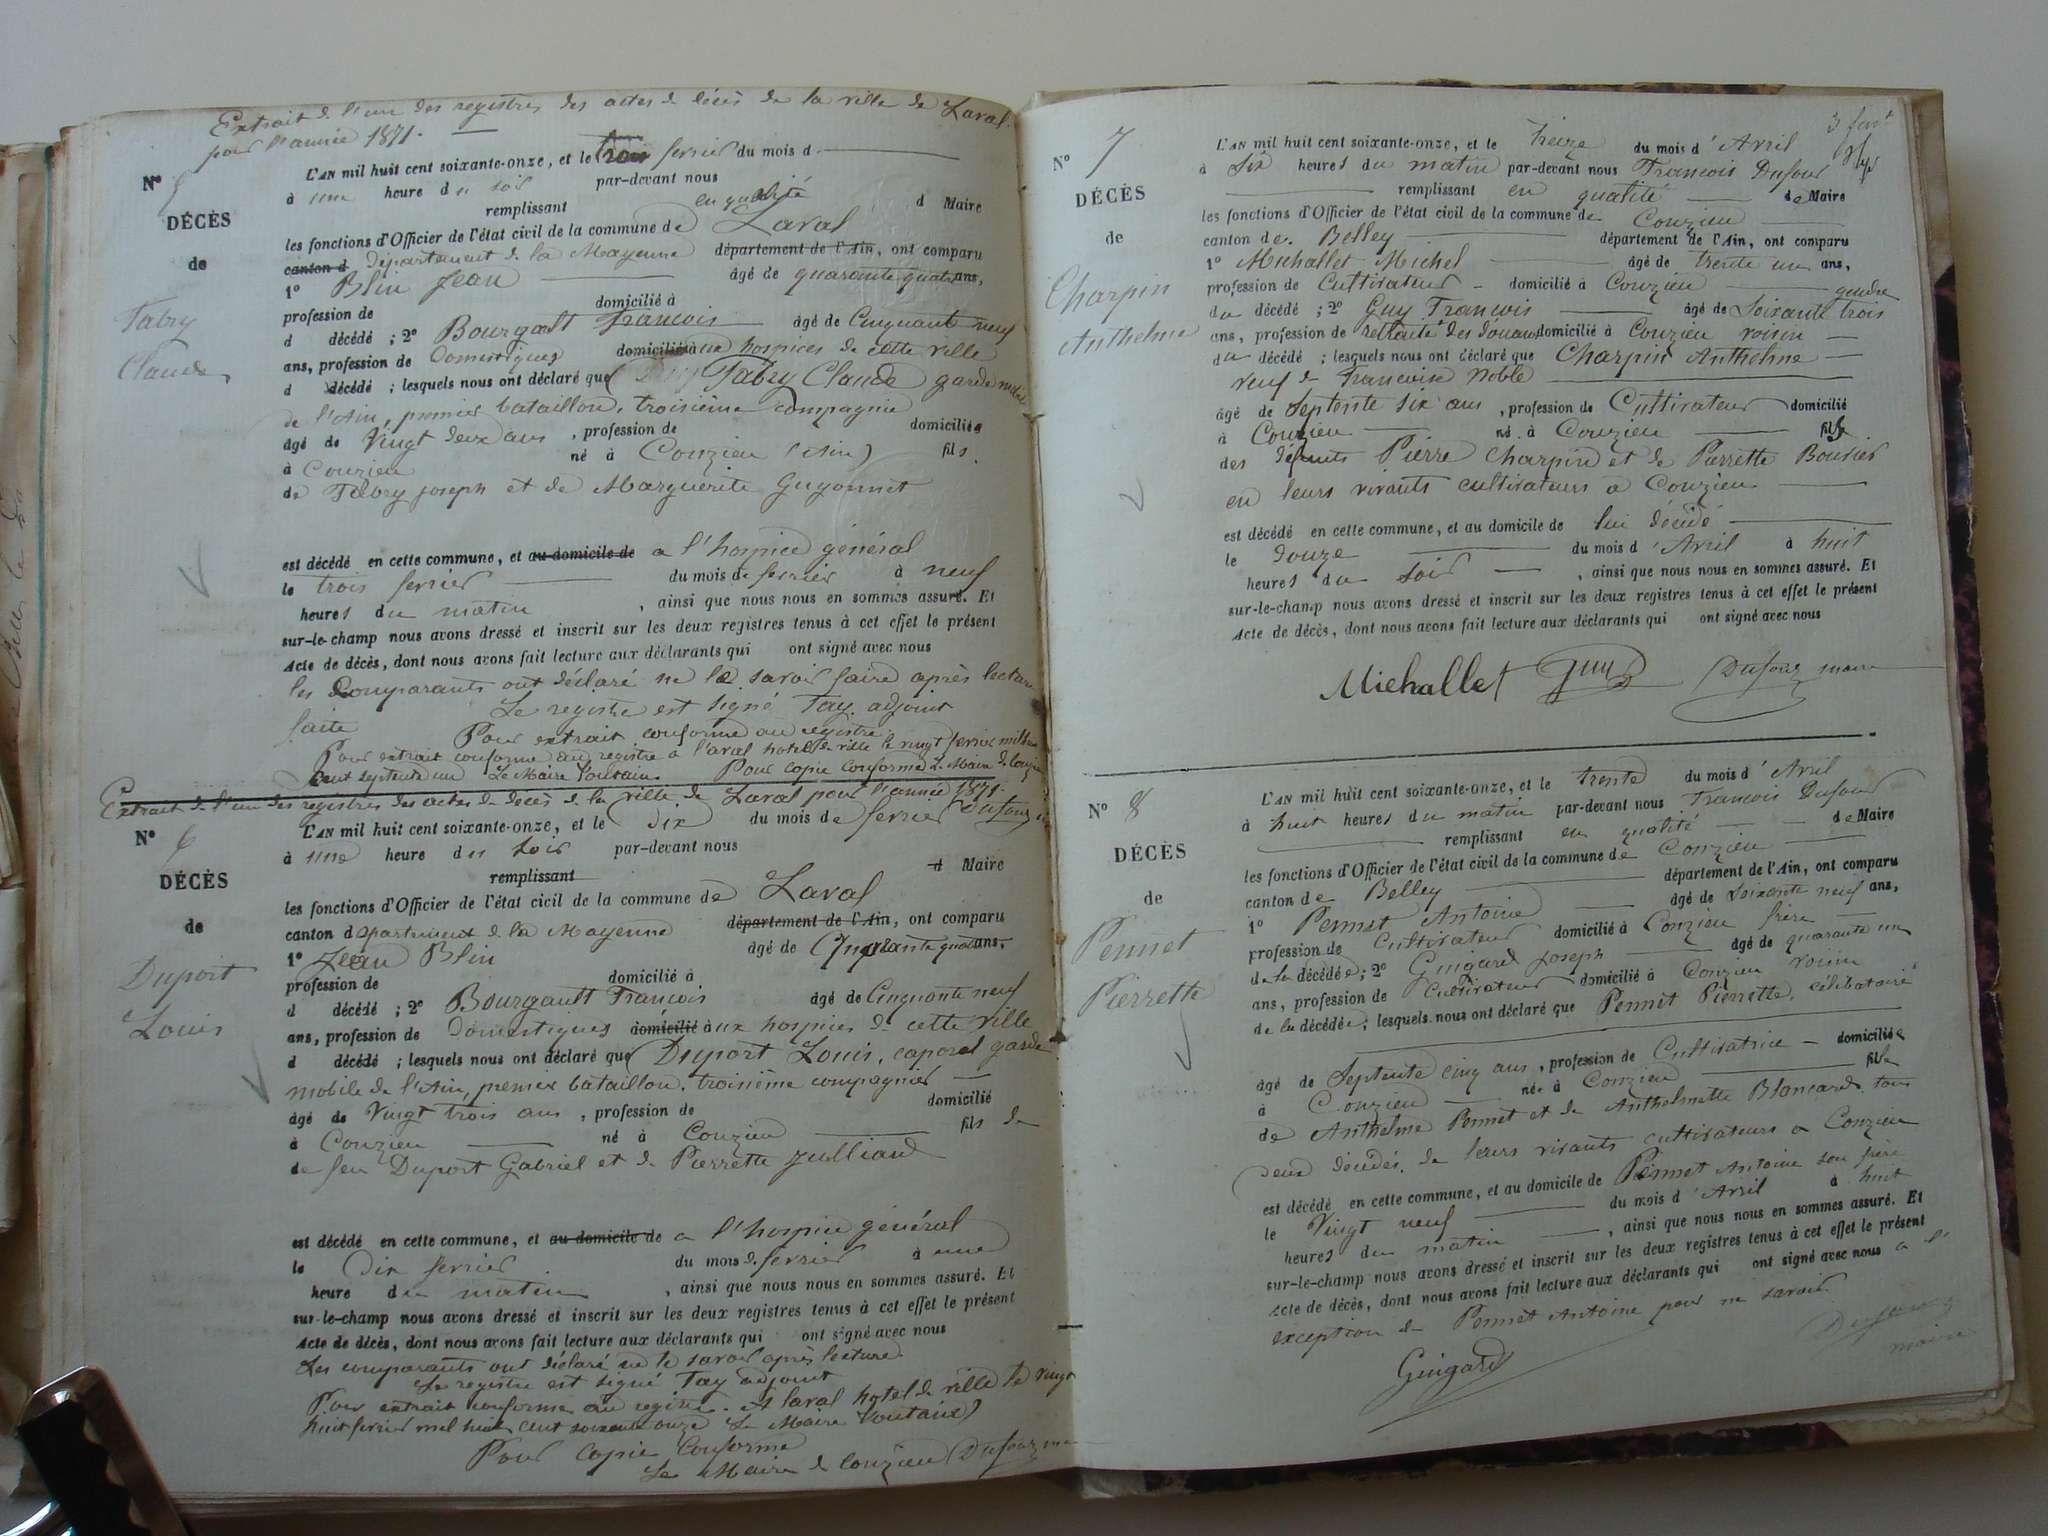 Extrait de l'un des registres des actes de décès de la ville de Laval
pour l'année 1871.
N° 5
L'AN mil huit cent soixante-onze, et le trois fevrier du mois d
à une heure du soir par-devant nous
DÉCÈS
remplissant en qualité d Maire
les fonctions d'Officier de l'état civil de la commune de Laval
de
canton d département de la Mayenne département de l'Ain, ont comparu
1° Blin Jean âgé de quarante quatre ans,
Fabry
Claude
profession de domicilié à
d décédé ; 2° Bourgault François âgé de Cinquante neuf
ans, profession de Domestiques domiciliés aux hospices de cette ville
d décédé ; lesquels nous ont déclaré que Fabry Claude garde mobile
de l'Ain, premier bataillon, troisième compagnie
âgé de Vingt deux ans, profession de domicilié
à Conzieu né à Conzieu (Ain) fils
de Fabry Joseph et de Marguerite Guyonnet
est décédé en cette commune, et au domicile de a l'hospice général
le trois fevrier du mois de fevrier à neuf
heures du matin, ainsi que nous nous en sommes assuré. Et
sur-le-champ nous avons dressé et inscrit sur les deux registres tenus à cet effet le présent
Acte de décès, dont nous avons fait lecture aux déclarants qui ont signé avec nous
les Comparants ont déclaré ne le savoir faire après lecture
faite Le registre est signé Tay adjoint
Pour extrait conforme au registre
Pour extrait conforme au registre a Laval hotel de ville le vingt fevrier mil huit
cent septente un Le Maire Toutain. Pour copie Conforme Le Maire de Conzieu
Dufour
Extrait de l'un des registres des actes de décès de la ville de Laval pour l'année 1871.
N° 6
L'AN mil huit cent soixante-onze, et le dix du mois de fevrier
à une heure du soir par-devant nous
DÉCÈS
remplissant d Maire
les fonctions d'Officier de l'état cicil de la commune de Laval
de
canton département de la Mayenne département de l'Ain, ont comparu
1° Jean Blin âgé de Quarante quatre ans,
Duport
Louis
profession de domicilié à
d décédé ; 2° Bourgault François âgé de Cinquante neuf
ans, profession de Domestiques domicilié aux hospices de cette ville
d décédé ; lesquels nous ont déclaré que Duport Louis, caporal garde
mobile de l'Ain, premier bataillon, troisième compagnie
âgé de Vingt trois ans, profession de domicilié
à Conzieu né à Conzieu fils de
de feu Duport Gabriel et de Pierrette Julliand
est décédé en cette commune, et au domicile de a l'hospice général
le Dix fevrier du mois de fevrier à une
heure du matin, ainsi que nous nous en sommes assuré. Et
sur-le-champ nous avons dressé et inscrit sur les deux registres tenus à cet effet le présent
Acte de décès, dont nous avons fait lecture aux déclarants qui ont signé avec nous
Les comparants ont déclaré ne le savoir après lecture
Le registre est signé Tay adjoint
Pour extrait conforme au registre. A Laval hotel de ville le vingt
huit fevrier mil huit cent soixante onze Le Maire Toutain
Pour copie Conforme
Le Maire de Conzieu Dufour maire
N° 7
L'AN mil huit cent soixante-onze, et le treize du mois d'Avril
à Six heures du matin par-devant nous François Dufour
DÉCÈS
remplissant en qualité de Maire
les fonctions d'Officier de l'état civil de la commune de Conzieu
de
canton de Belley département de l'Ain, ont comparu
1° Michallet Michel âgé de trente un ans,
Charpin
Anthelme
profession de Cultivateur domicilié à Conzieu gendre
du décédé ; 2° Guy François âgé de Soixante trois
ans, profession de retraité des douanes domicilié à Conzieu voisin
du décédé ; lesquels nous ont déclaré que Charpin Anthelme
veuf de Françoise Noble
âgé de Septente six ans, profession de Cultivateur domicilié
à Conzieu né à Conzieu fils
des défunts Pierre Charpin et de Pierrette Bouvier
en leurs vivants cultivateurs a Conzieu
est décédé en cette commune, et au domicile de lui décédé
le douze du mois d'Avril à huit
heures du soir, ainsi que nous nous en sommes assuré. Et
sur-le-champ nous avons dressé et inscrit sur les deux registres tenus à cet effet le présent
Acte de décès, dont nous avons fait lecture aux déclarants qui ont signé avec nous
Michallet Guy Dufour maire
N° 8
L'AN mil huit cent soixante-onze, et le trente du mois d'Avril
à huit heures du matin par-devant nous François Dufour
DÉCÈS
remplissant en qualité de Maire
les fonctions d'Officier de l'état civil de la commune de Conzieu
de
canton de Belley département de l'Ain, ont comparu
1° Pennet Antoine âgé de Soixante neuf ans,
Pennet
Pierrette
profession de Cultivateur domicilié à Conzieu frère
de la décédée ; 2° Guigard Joseph âgé de quarante un
ans, profession de Cultivateur domicilié à Conzieu voisin
de la décédée ; lesquels nous ont déclaré que Pennet Pierrette, célibataire
âgé de Septente cinq ans, profession de Cultivatrice domiciliée
à Conzieu née à Conzieu fille
de Anthelme Pennet et de Anthelmette Blancard tous
deux décédés, de leurs vivants cultivateurs a Conzieu
est décédé en cette commune, et au domicile de Pennet Antoine son frère
le Vingt neuf du mois d'Avril à huit
heures du matin, ainsi que nous nous en sommes assuré. Et
sur-le-champ nous avons dressé et inscrit sur les deux registres tenus à cet effet le présent
Acte de décès, dont nous avons fait lecture aux déclarants qui ont signé avec nous a l'
exception de Pennet Antoine pour ne savoir
Guigard
Dufour
maire